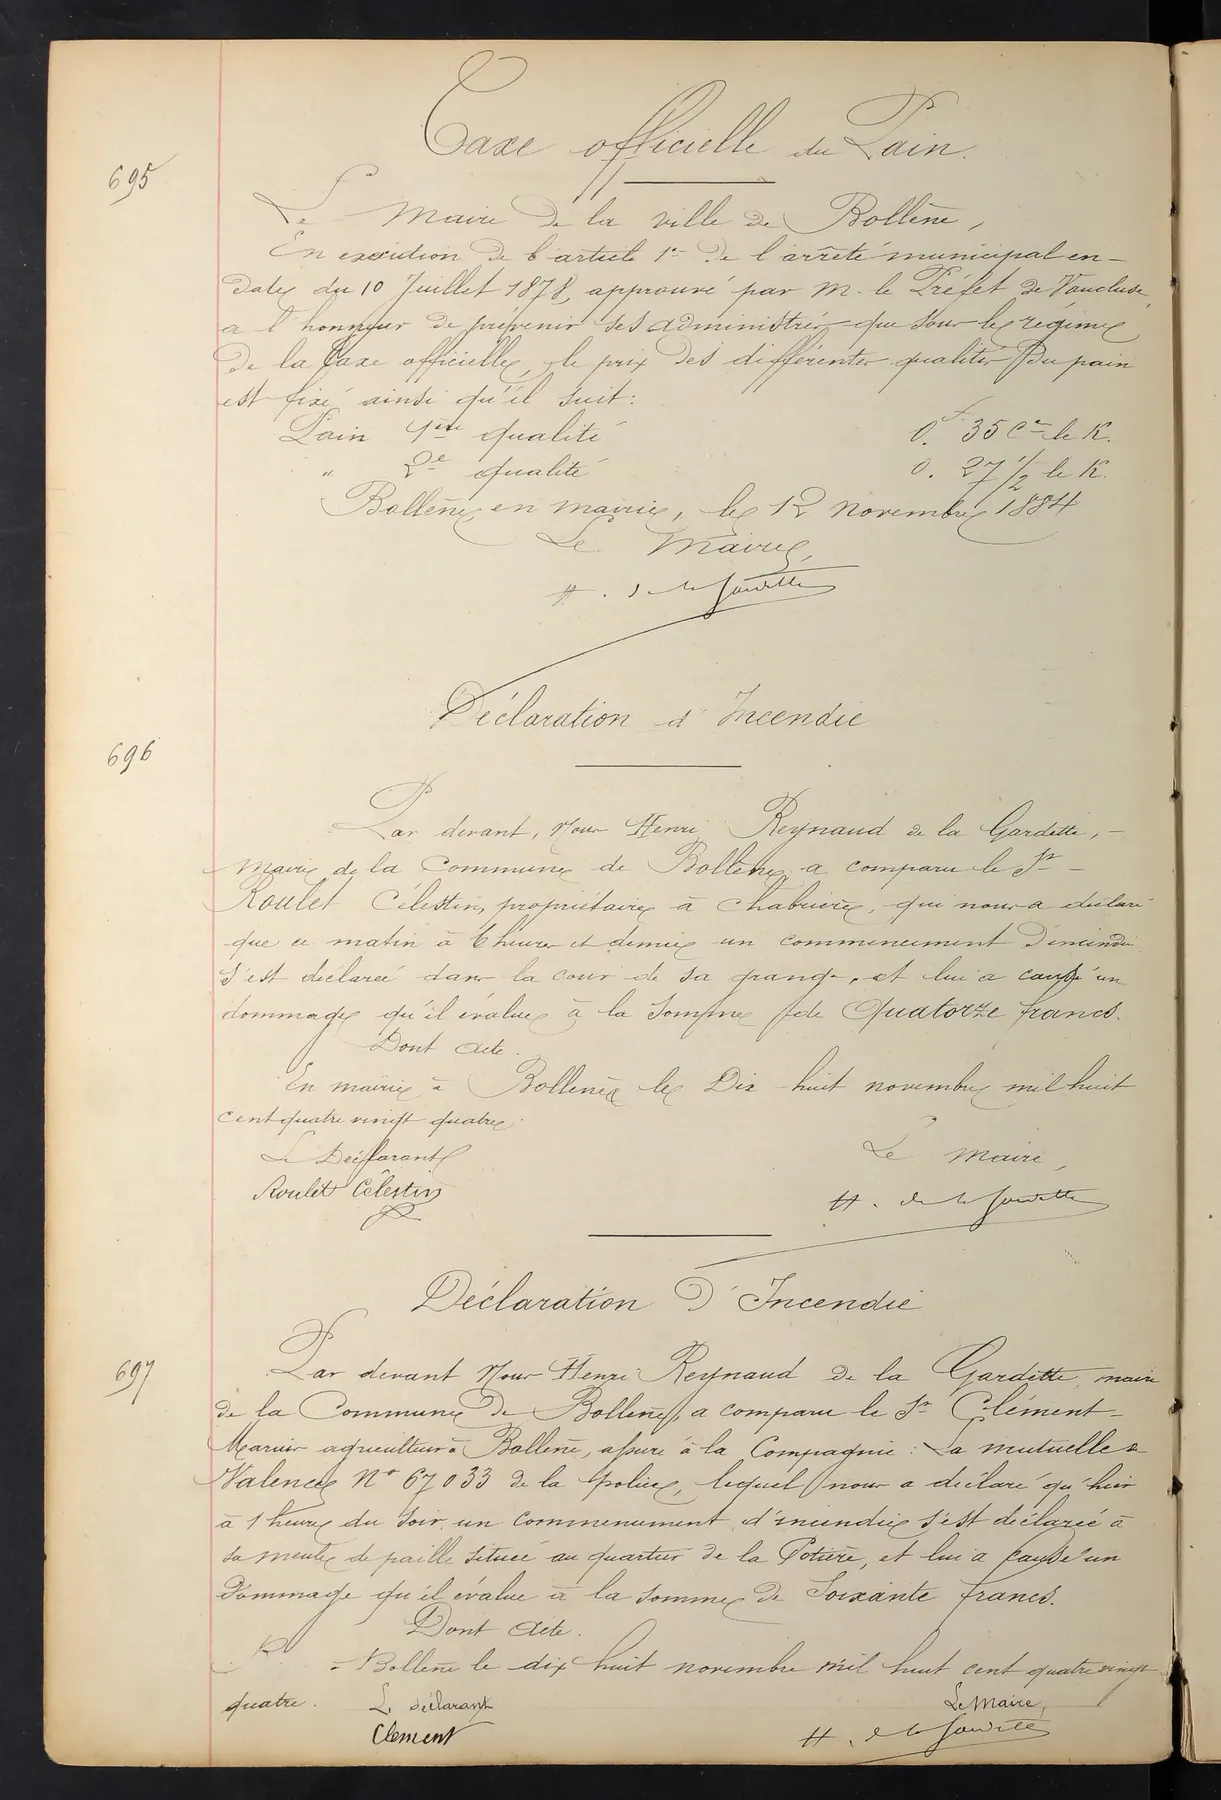 Taxe officielle du Pain.
695
Le Maire de la ville de Bollène,
En exécution de l'article 1er de l'arrêté municipal en-
date du 10 Juillet 1878, approuvé par M. le Préfet de Vaucluse,
a l'honneur de prévenir ses administrés que sous le régime
de la Taxe officielle, le prix des différentes qualités du pain
est fixé ainsi qu'il suit:
Pain 1ère qualité 0.f 35 Ces le K.
" 2e qualité 0. 27 1/2 le K.
Bollène en mairie, le 12 novembre 1884
Le Maire,
H. de la Gardette
Déclaration d'Incendie
696
Par devant, Nous Henri Reynaud de la Gardette, -
Maire de la Commune de Bollène, a comparu le Sr -
Roulet Célestin, propriétaire à Chabrière, qui nous a déclaré
que ce matin à 6 heures et demie un commencement d'incendie
s'est déclaré dans la cour de sa grange, et lui a causé un
dommage qu'il évalue à la somme de Quatorze francs.
Dont acte.
En mairie à Bollène le Dix-huit novembre mil huit
cent quatre vingt quatre.
Le Déclarant Le Maire,
Roulet Célestin H. de la Gardette
Déclaration d'Incendie
697
Par devant Nous Henri Reynaud de la Gardette, maire
de la Commune de Bollène, a comparu le Sr Clément-
Marius agriculteur à Bollène, assuré à la Compagnie: La mutuelle de
Valence No 67033 de la police, lequel nous a déclaré qu'hier
à 1 heure du soir, un commencement d'incendie s'est déclaré à
sa meule de paille située au quartier de la Potière, et lui a causé un
Dommage qu'il évalue à la somme de Soixante francs.
Dont acte.
à Bollène le dix huit novembre mil huit cent quatre vingt
quatre. Le déclarant Le Maire,
Clement H. de la Gardette